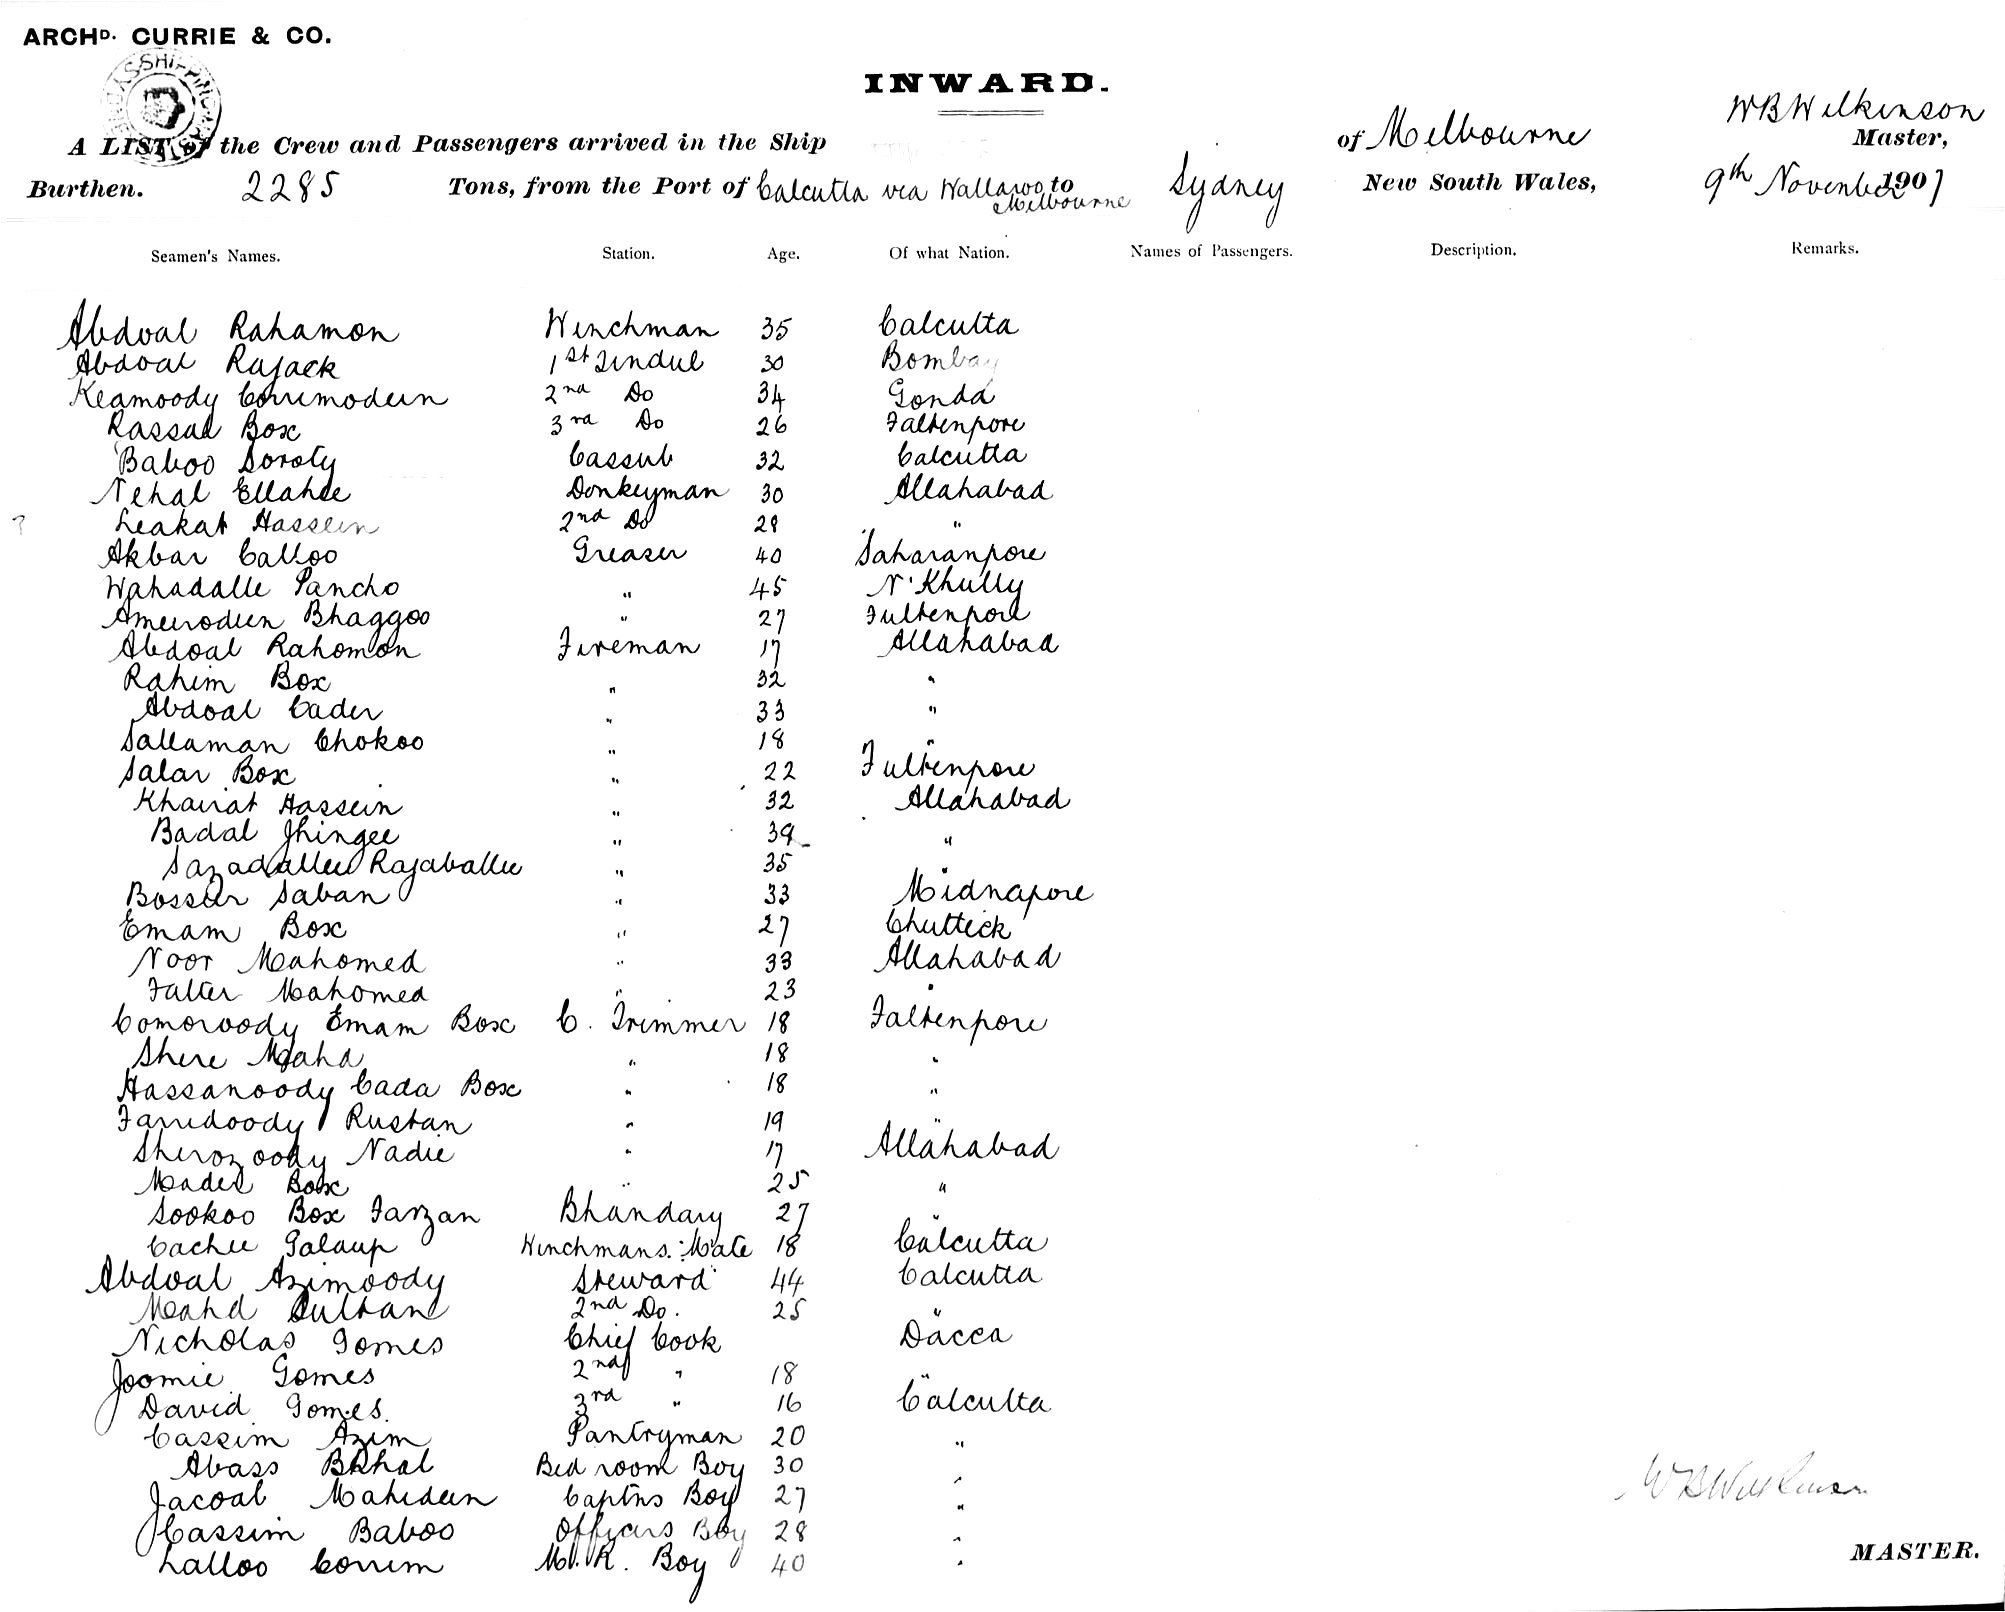 ARCHD. CURRIE & CO.
INWARD.
A LIST of the Crew and Passengers arrived in the Ship of Melbourne WBWilkinson Master,
Burthen. 2285 Tons, from the Port of Calcutta via Wallaroo Melbourne to Sydney New South Wales, 9th November 1907
Seamen's Names. Station. Age. Of what Nation. Names of Passengers. Description. Remarks.
Abdoal Rahamon Winchman 35 Calcutta
Abdoal Rajack 1st Tindul 30 Bombay
Keamoody Corrimodeen 2nd Do 34 Gonda
Rassul Box 3rd Do 26 Faltenpore
Baboo Soroty Cassub 32 Calcutta
Nehal Ellahee Donkeyman 30 Allahabad
? Leakat Hassein 2nd Do 28 "
Akbar Calloo Greaser 40 Saharanpore
Wahadalle Pancho " 45 N'Khully
Ameirodeen Bhaggoo " 27 Fultenpore
Abdoal Rahomon Fireman 17 Allahabad
Rahim Box " 32 "
Abdoal Cader " 33 "
Sallaman Chokoo " 18 "
Salar Box " 22 Fultenpore
Khairat Hassein " 32 Allahabad
Badal Jhingee " 39 "
Sazadallee Rajaballee " 35
Bosser Saban " 33 Midnapore
Emam Box " 27 Chuttick
Noor Mahomed " 33 Allahabad
Falter Mahomed " 23 "
Comoroody Emam Box C. Trimmer 18 Faltenpore
Shere Mahd " 18 "
Hassanoody Cada Box " 18 "
Farridoody Rustan " 19 "
Sherozoody Nadie " 17 Allahabad
Mader Box " 25 "
Sookoo Box Farzan Bhandary 27 "
Cachee Golaup Winchmans Mate 18 Calcutta
Abdoal Azimoody Steward 44 Calcutta
Mahd Sultan 2nd Do. 25 "
Nicholas Gomes Chief Cook Dacca
Joomie Gomes 2nd " 18 "
David Gomes. 3rd " 16 Calcutta
Cassim Azim Pantryman 20 "
Abass Bkhal Bed room Boy 30 "
Jacoal Mahideen Captns Boy 27 "
Cassim Baboo Officers Boy 28 "
Lalloo Corrim M. R. Boy 40 "
WBWilkinson
MASTER.